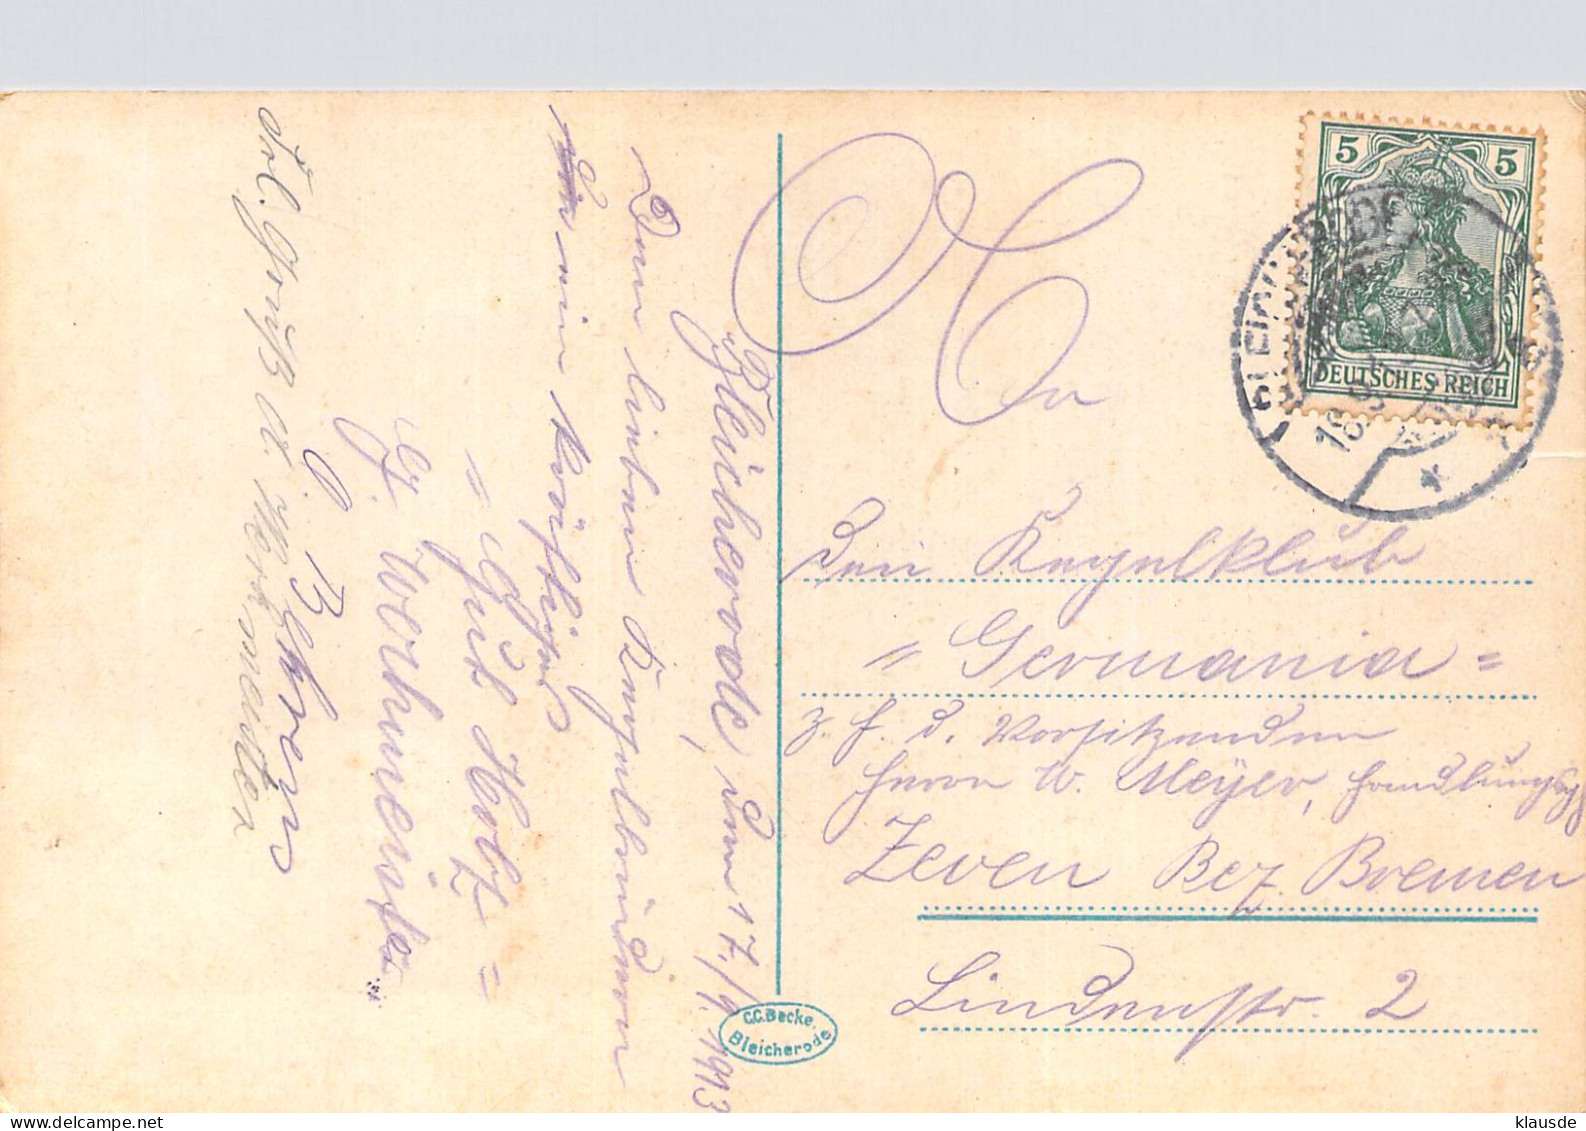 Bleicherode, den 17./9. 1913
Den lieben Kegelbrüdern
ein kräftiges
"Gut Holz"
G. Behrens
Frl. Gruß a.
An
den Kegelklub
"Germania"
z. H. d. Vorsitzenden
Herrn W. Meyer, Handlung
Zeven Bez. Bremen
Lindenstr. 2
5 5
DEUTSCHES REICH
BLEICHERODE
18
C.C. Becke,
Bleicherode
klausde